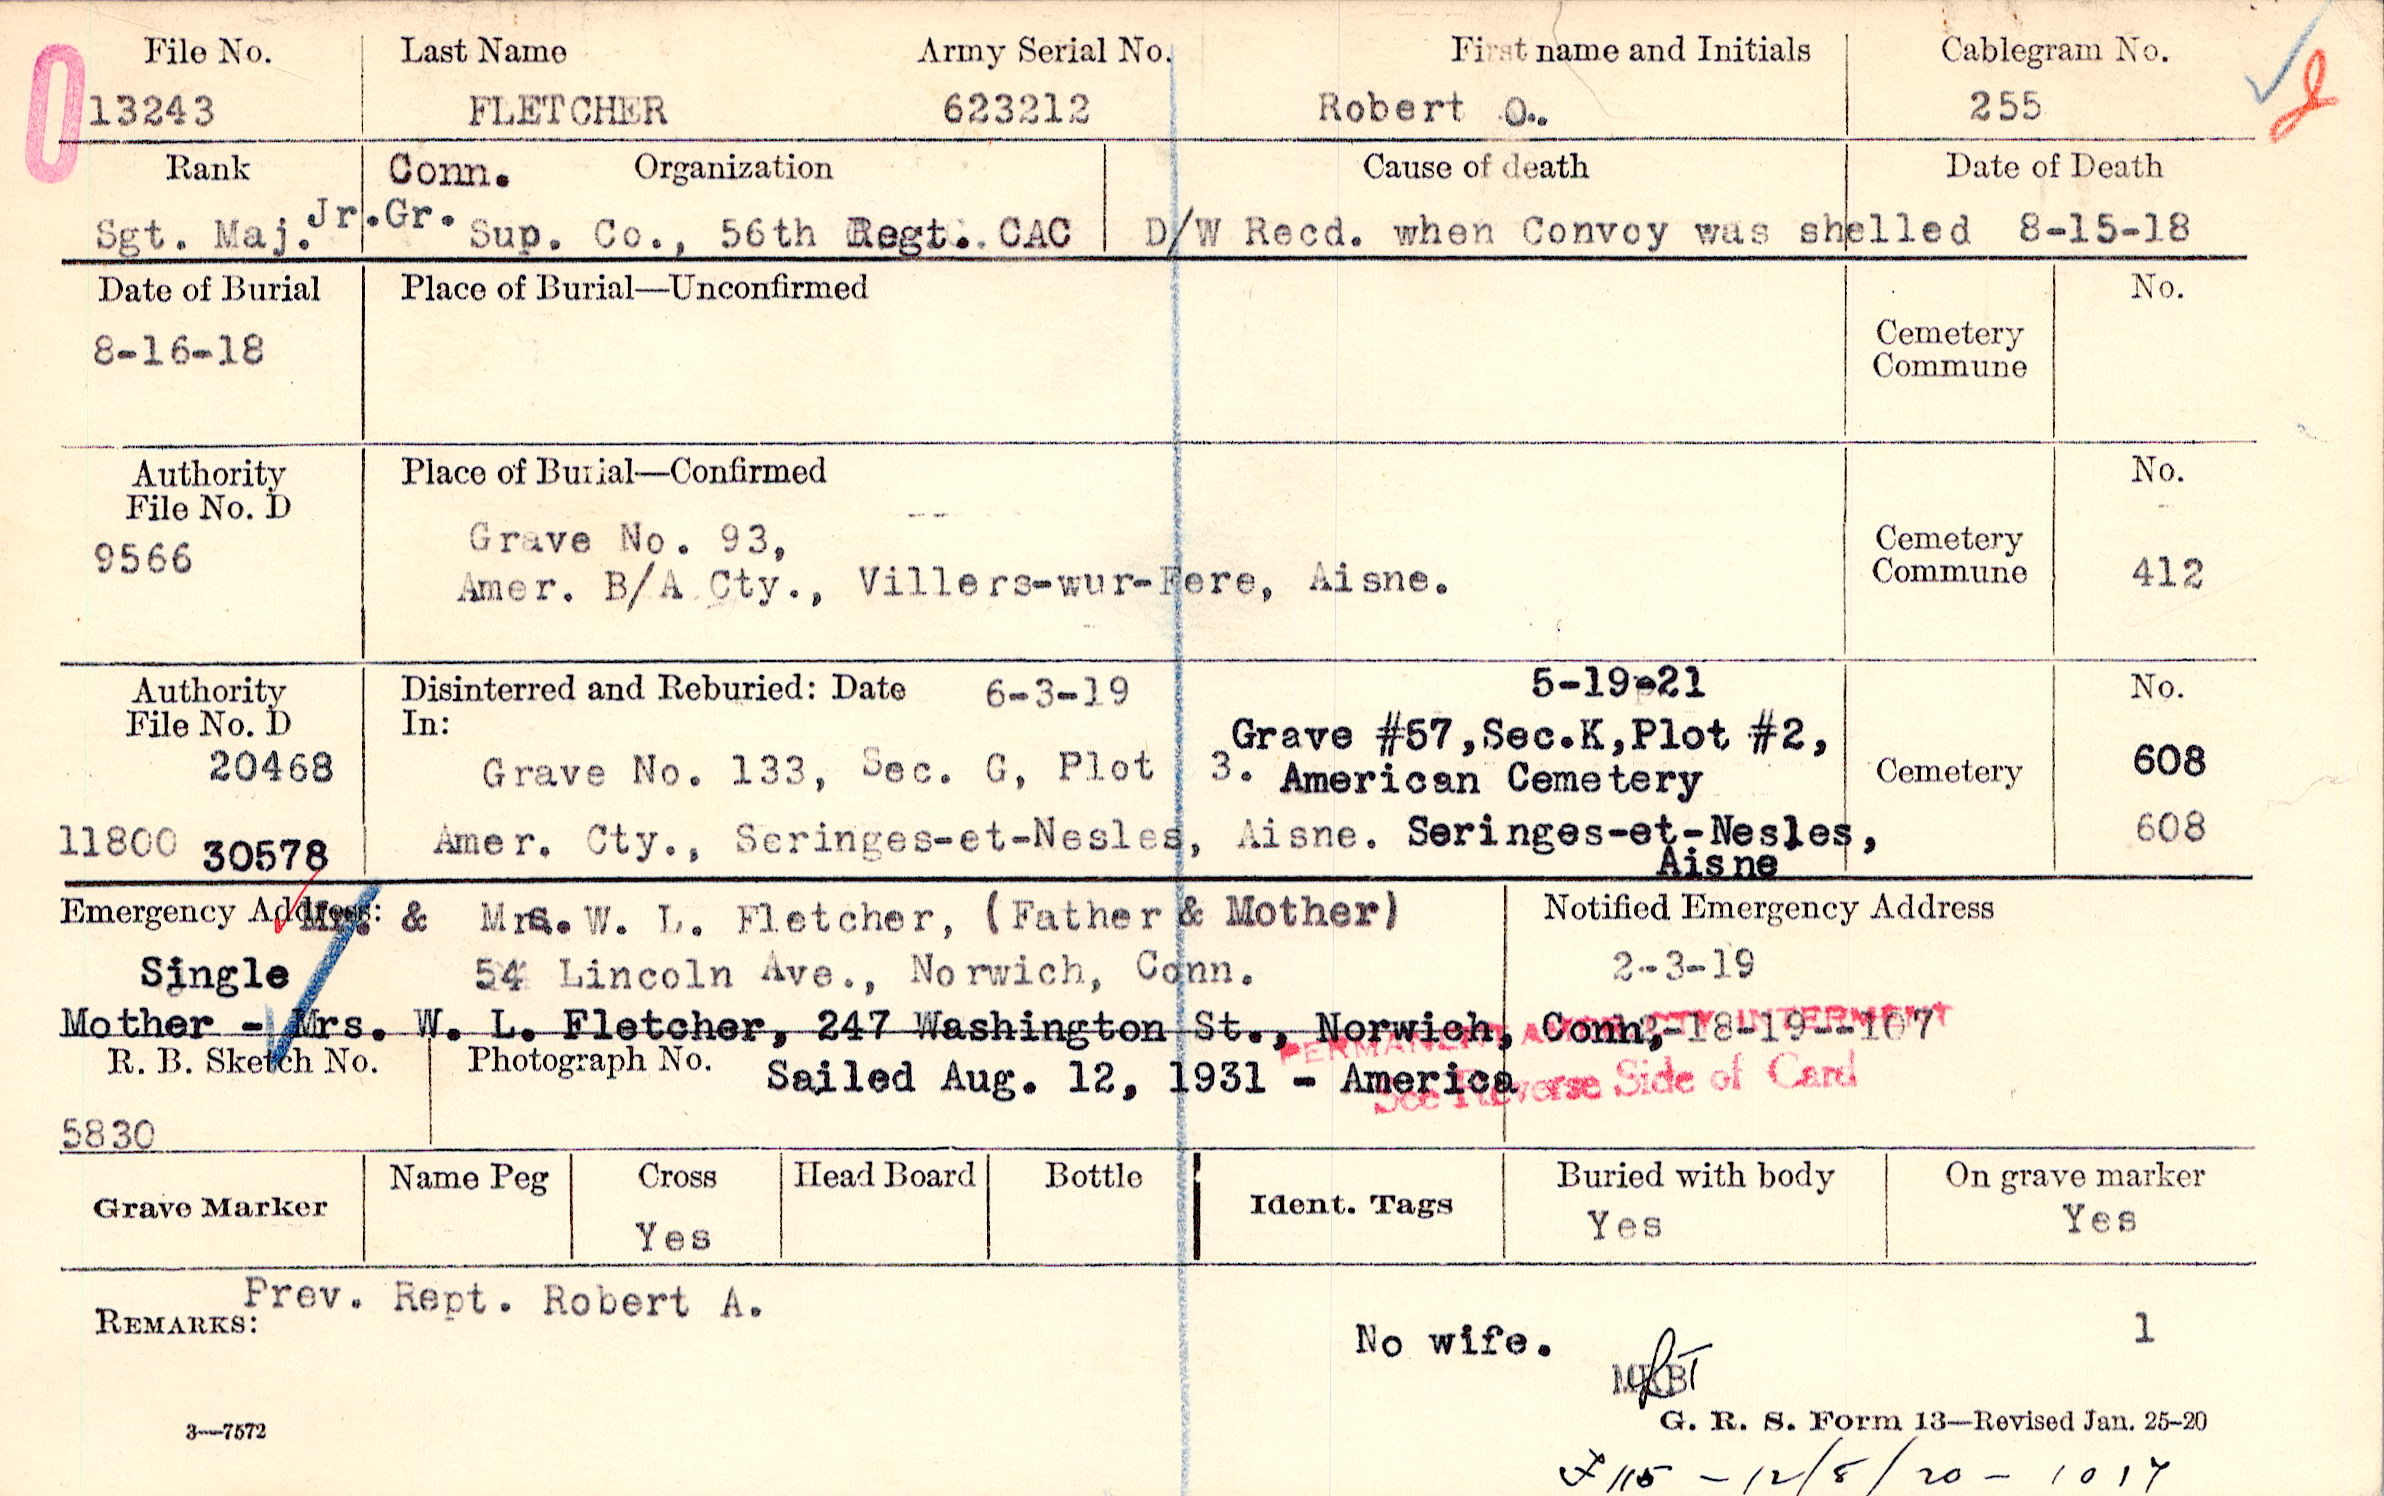 File No. Last Name Army Serial No. First name and Initials Cablegram No.
13243 FLETCHER 623212 Robert O. 255
Rank Conn. Organization Cause of death Date of Death
Sgt. Maj. Jr.Gr. Sup. Co., 56th Regt. CAC D/W Recd. when Convoy was shelled 8-15-18
Date of Burial Place of Burial—Unconfirmed No.
8-16-18
Cemetery
Commune
Authority Place of Burial—Confirmed No.
File No. D
9566
Grave No. 93,
Amer. B/A Cty., Villers-wur-Fere, Aisne.
Cemetery
Commune 412
Authority Disinterred and Reburied: Date 6-3-19 5-19-21 No.
File No. D In: Grave #57,Sec.K,Plot #2,
20468 Grave No. 133, Sec. G, Plot 3. American Cemetery Cemetery 608
11800 30578 Amer. Cty., Seringes-et-Nesles, Aisne. Seringes-et-Nesles, 608
Aisne
Emergency Address: Mr. & Mrs. W. L. Fletcher, (Father & Mother) Notified Emergency Address
Single 54 Lincoln Ave., Norwich, Conn. 2-3-19
Mother - Mrs. W. L. Fletcher, 247 Washington St., Norwich, Conn, -18-19--107
PERMANENT INTERMENT
R. B. Sketch No. Photograph No. Sailed Aug. 12, 1931 - America
See Reverse Side of Card
5830
Grave Marker Name Peg Cross Head Board Bottle Ident. Tags Buried with body On grave marker
Yes Yes Yes
Prev. Rept. Robert A.
REMARKS:
No wife. 1
3—7572
G. R. S. Form 13—Revised Jan. 25-20
115 - 12/8/20 - 1017